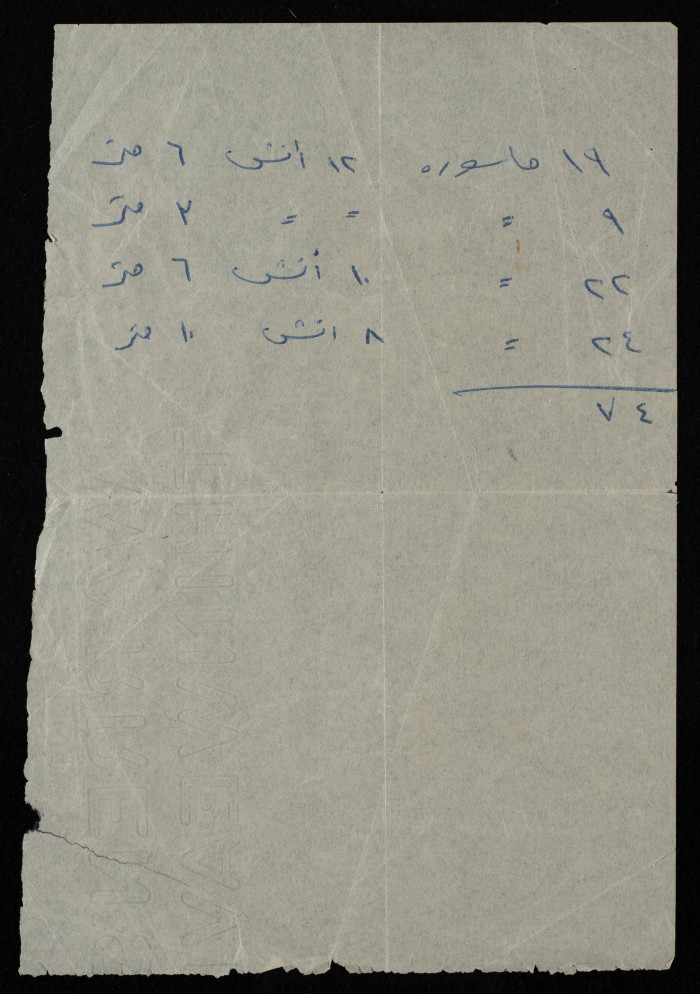 ١٩ ماسوره ١٢ أنش ٦ متر
٩ = = = ٣ متر
٢٢ = ١٠ أنش ٦ متر
٢٤ = ٨ انش ١٠ متر
٧٤